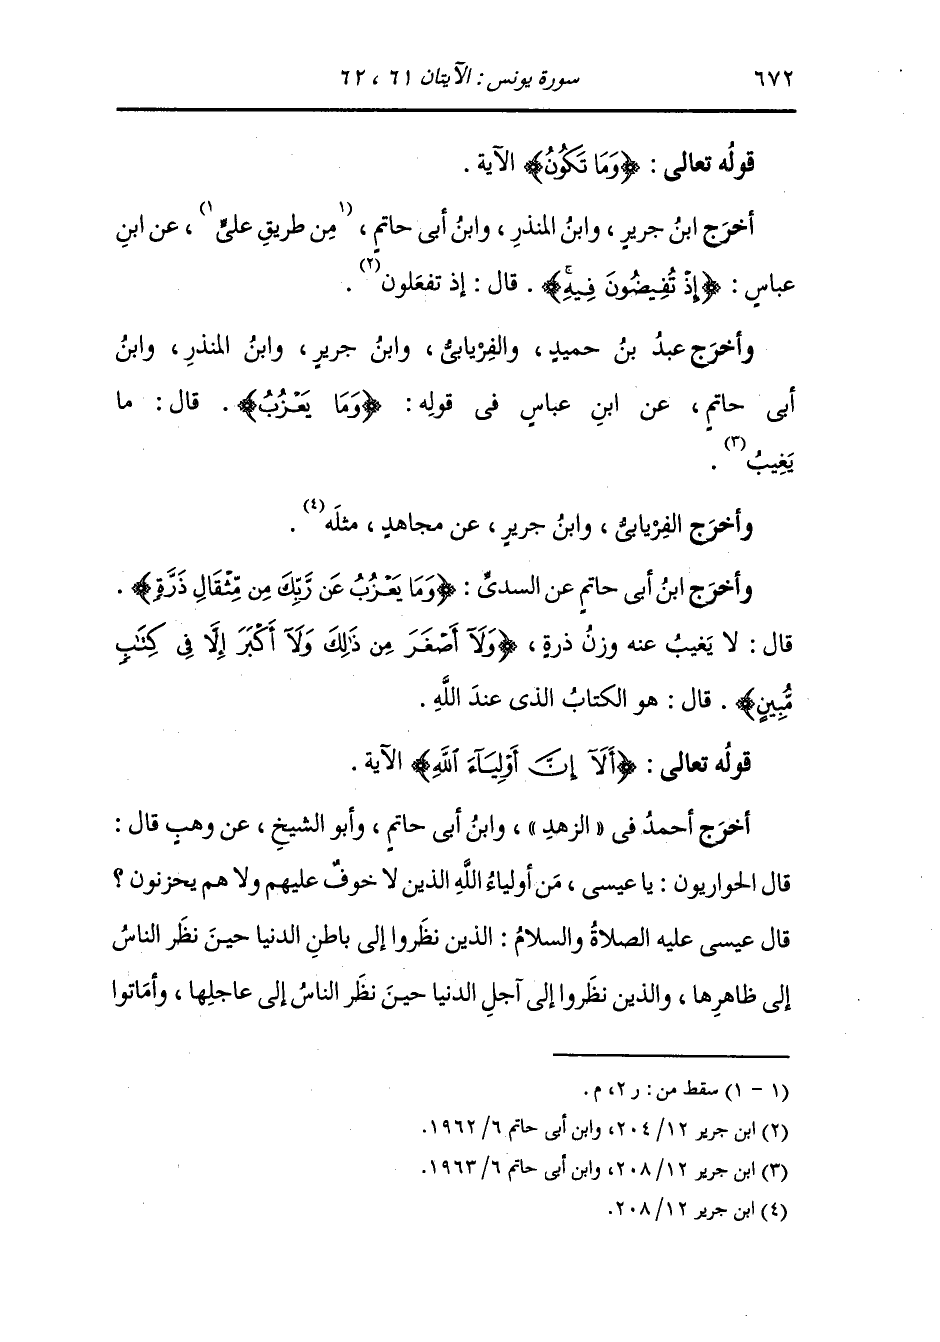 ٦٧٢ سورة يونس : الآيتان ٦١ ، ٦٢
قولُه تعالى : ﴿وَمَا تَكُونُ﴾ الآية .
أخرَج ابنُ جريرٍ ، وابنُ المنذرِ ، وابنُ أبى حاتمٍ ، (١مِن طريقِ علىٍّ١) ، عن ابنِ
عباسٍ : ﴿إِذْ تُفِيضُونَ فِيهِۚ﴾ . قال : إذ تفعَلون(٢) .
وأخرَج عبدُ بنُ حميدٍ ، والفِرْيابىُّ ، وابنُ جريرٍ ، وابنُ المنذرِ ، وابنُ
أبى حاتمٍ ، عن ابنِ عباسٍ فى قولِه : ﴿وَمَا يَعْزُبُ﴾ . قال : ما
يَغِيبُ(٣) .
وأخرَج الفِرْيابىُّ ، وابنُ جريرٍ ، عن مجاهدٍ ، مثلَه(٤) .
وأخرَج ابنُ أبى حاتمٍ عن السدىِّ : ﴿وَمَا يَعْزُبُ عَن رَّبِّكَ مِن مِّثْقَالِ ذَرَّةٍ﴾ .
قال : لا يَغيبُ عنه وزنُ ذرةٍ ، ﴿وَلَآ أَصْغَرَ مِن ذَٰلِكَ وَلَآ أَكْبَرَ إِلَّا فِى كِتَٰبٍ
مُّبِينٍ﴾ . قال : هو الكتابُ الذى عندَ اللَّهِ .
قولُه تعالى : ﴿أَلَآ إِنَّ أَوْلِيَآءَ ٱللَّهِ﴾ الآية .
أخرَج أحمدُ فى « الزهدِ » ، وابنُ أبى حاتمٍ ، وأبو الشيخِ ، عن وهبٍ قال :
قال الحواريون : يا عيسى ، مَن أولياءُ اللَّهِ الذين لا خوفٌ عليهم ولا هم يحزنون ؟
قال عيسى عليه الصلاةُ والسلامُ : الذين نظَروا إلى باطنِ الدنيا حينَ نظَر الناسُ
إلى ظاهرِها ، والذين نظَروا إلى آجلِ الدنيا حينَ نظَر الناسُ إلى عاجلِها ، وأمَاتوا
(١ - ١) سقط من : ر ٢، م .
(٢) ابن جرير ١٢/ ٢٠٤، وابن أبى حاتم ٦/ ١٩٦٢.
(٣) ابن جرير ١٢/ ٢٠٨، وابن أبى حاتم ٦/ ١٩٦٣.
(٤) ابن جرير ١٢/ ٢٠٨.